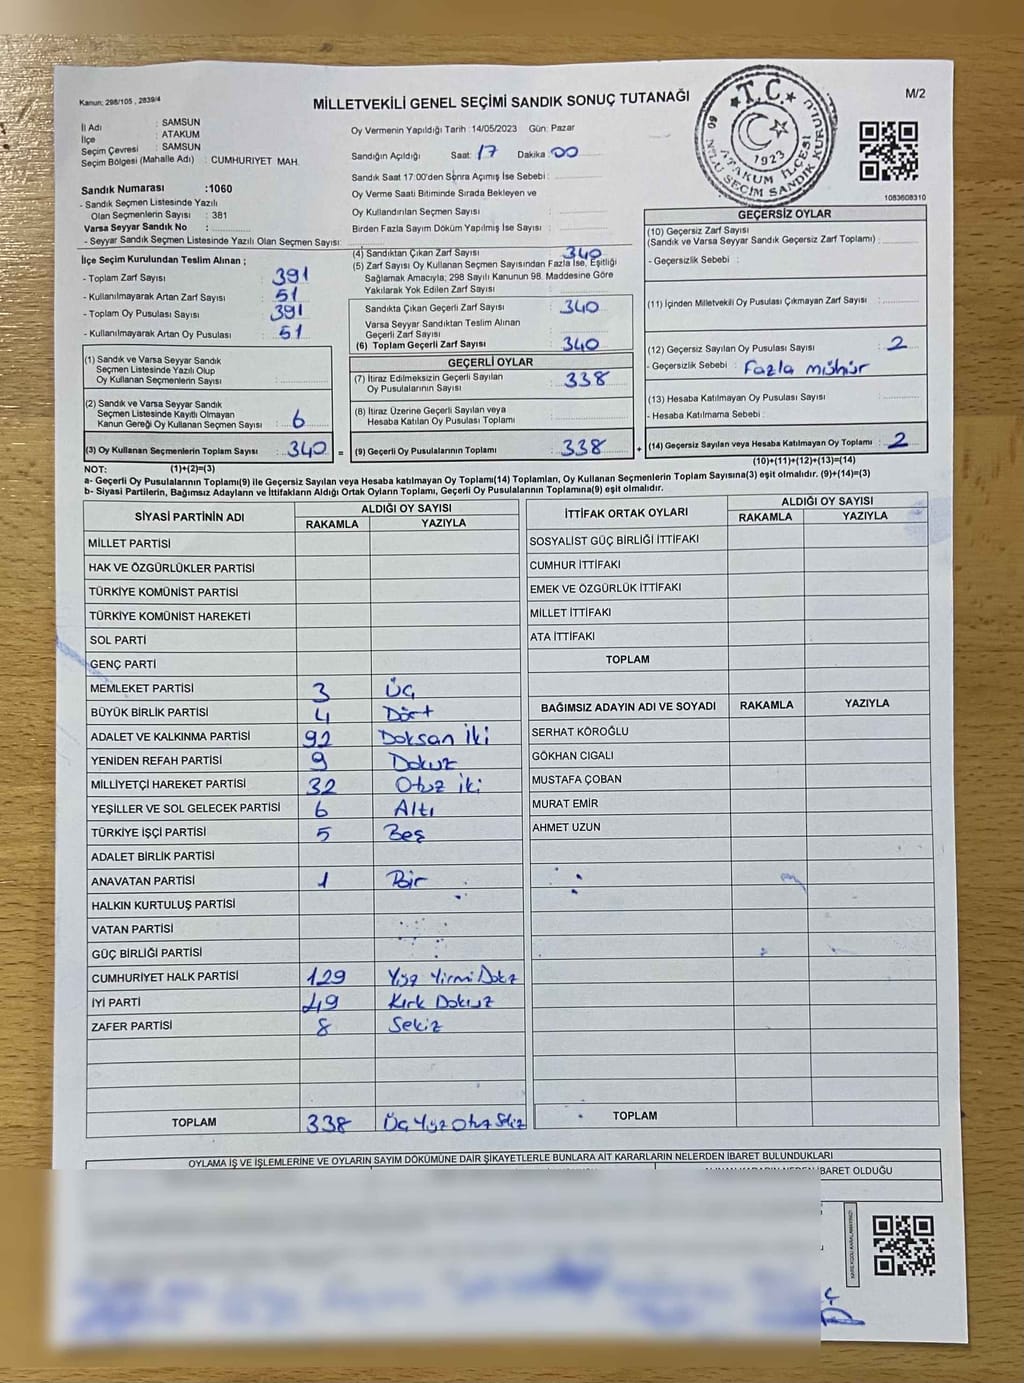 Kanun; 298/105 , 2839/4
MİLLETVEKİLİ GENEL SEÇİMİ SANDIK SONUÇ TUTANAĞI
M/2
T.C.
1923
ATAKUM İLÇESİ
NOLU SEÇİM SANDIK KURULU
İl Adı : SAMSUN
İlçe : ATAKUM
Seçim Çevresi : SAMSUN
Seçim Bölgesi (Mahalle Adı) : CUMHURIYET MAH.
Oy Vermenin Yapıldığı Tarih :14/05/2023 Gün: Pazar
Sandığın Açıldığı Saat: 17 Dakika: 00
Sandık Saat 17:00'den Sonra Açımış İse Sebebi :
Oy Verme Saati Bitiminde Sırada Bekleyen ve
Oy Kullandırılan Seçmen Sayısı :
Birden Fazla Sayım Döküm Yapılmış İse Sayısı :
1083608310
Sandık Numarası :1060
- Sandık Seçmen Listesinde Yazılı
Olan Seçmenlerin Sayısı : 381
Varsa Seyyar Sandık No :
- Seyyar Sandık Seçmen Listesinde Yazılı Olan Seçmen Sayısı:
İlçe Seçim Kurulundan Teslim Alınan ;
- Toplam Zarf Sayısı : 391
- Kullanılmayarak Artan Zarf Sayısı : 51
- Toplam Oy Pusulası Sayısı : 391
- Kullanılmayarak Artan Oy Pusulası : 51
(1) Sandık ve Varsa Seyyar Sandık
Seçmen Listesinde Yazılı Olup
Oy Kullanan Seçmenlerin Sayısı :
(2) Sandık ve Varsa Seyyar Sandık
Seçmen Listesinde Kayıtlı Olmayan
Kanun Gereği Oy Kullanan Seçmen Sayısı : 6
(3) Oy Kullanan Seçmenlerin Toplam Sayısı : 340 =
(4) Sandıktan Çıkan Zarf Sayısı : 340
(5) Zarf Sayısı Oy Kullanan Seçmen Sayısından Fazla İse, Eşitliği
Sağlamak Amacıyla; 298 Sayılı Kanunun 98. Maddesine Göre
Yakılarak Yok Edilen Zarf Sayısı :
Sandıkta Çıkan Geçerli Zarf Sayısı : 340
Varsa Seyyar Sandıktan Teslim Alınan
Geçerli Zarf Sayısı :
(6) Toplam Geçerli Zarf Sayısı : 340
GEÇERLİ OYLAR
(7) İtiraz Edilmeksizin Geçerli Sayılan
Oy Pusulalarının Sayısı : 338
(8) İtiraz Üzerine Geçerli Sayılan veya
Hesaba Katılan Oy Pusulası Toplamı :
(9) Geçerli Oy Pusulalarının Toplamı : 338 +
GEÇERSİZ OYLAR
(10) Geçersiz Zarf Sayısı
(Sandık ve Varsa Seyyar Sandık Geçersiz Zarf Toplamı) :
- Geçersizlik Sebebi :
(11) İçinden Milletvekili Oy Pusulası Çıkmayan Zarf Sayısı :
(12) Geçersiz Sayılan Oy Pusulası Sayısı : 2
- Geçersizlik Sebebi : Fazla mühür
(13) Hesaba Katılmayan Oy Pusulası Sayısı :
- Hesaba Katılmama Sebebi :
(14) Geçersiz Sayılan veya Hesaba Katılmayan Oy Toplamı : 2
NOT: (1)+(2)=(3)
(10)+(11)+(12)+(13)=(14)
a- Geçerli Oy Pusulalarının Toplamı(9) ile Geçersiz Sayılan veya Hesaba katılmayan Oy Toplamı(14) Toplamları, Oy Kullanan Seçmenlerin Toplam Sayısına(3) eşit olmalıdır. (9)+(14)=(3)
b- Siyasi Partilerin, Bağımsız Adayların ve İttifakların Aldığı Ortak Oyların Toplamı, Geçerli Oy Pusulalarının Toplamına(9) eşit olmalıdır.
SİYASİ PARTİNİN ADI
ALDIĞI OY SAYISI
RAKAMLA YAZIYLA
MİLLET PARTİSİ
HAK VE ÖZGÜRLÜKLER PARTİSİ
TÜRKİYE KOMÜNİST PARTİSİ
TÜRKİYE KOMÜNİST HAREKETİ
SOL PARTİ
GENÇ PARTİ
MEMLEKET PARTİSİ 3 Üç
BÜYÜK BİRLİK PARTİSİ 4 Dört
ADALET VE KALKINMA PARTİSİ 92 Doksan iki
YENİDEN REFAH PARTİSİ 9 Dokuz
MİLLİYETÇİ HAREKET PARTİSİ 32 Otuz iki
YEŞİLLER VE SOL GELECEK PARTİSİ 6 Altı
TÜRKİYE İŞÇİ PARTİSİ 5 Beş
ADALET BİRLİK PARTİSİ
ANAVATAN PARTİSİ 1 Bir
HALKIN KURTULUŞ PARTİSİ
VATAN PARTİSİ
GÜÇ BİRLİĞİ PARTİSİ
CUMHURİYET HALK PARTİSİ 129 Yüz Yirmi Dokuz
İYİ PARTİ 49 Kırk Dokuz
ZAFER PARTİSİ 8 Sekiz
TOPLAM 338 Üç Yüz Otuz Sekiz
İTTİFAK ORTAK OYLARI
ALDIĞI OY SAYISI
RAKAMLA YAZIYLA
SOSYALIST GÜÇ BİRLİĞİ İTTİFAKI
CUMHUR İTTİFAKI
EMEK VE ÖZGÜRLÜK İTTİFAKI
MİLLET İTTİFAKI
ATA İTTİFAKI
TOPLAM
BAĞIMSIZ ADAYIN ADI VE SOYADI RAKAMLA YAZIYLA
SERHAT KÖROĞLU
GÖKHAN CIGALI
MUSTAFA ÇOBAN
MURAT EMİR
AHMET UZUN
TOPLAM
OYLAMA İŞ VE İŞLEMLERİNE VE OYLARIN SAYIM DÖKÜMÜNE DAİR ŞİKAYETLERLE BUNLARA AİT KARARLARIN NELERDEN İBARET BULUNDUKLARI
İBARET OLDUĞU